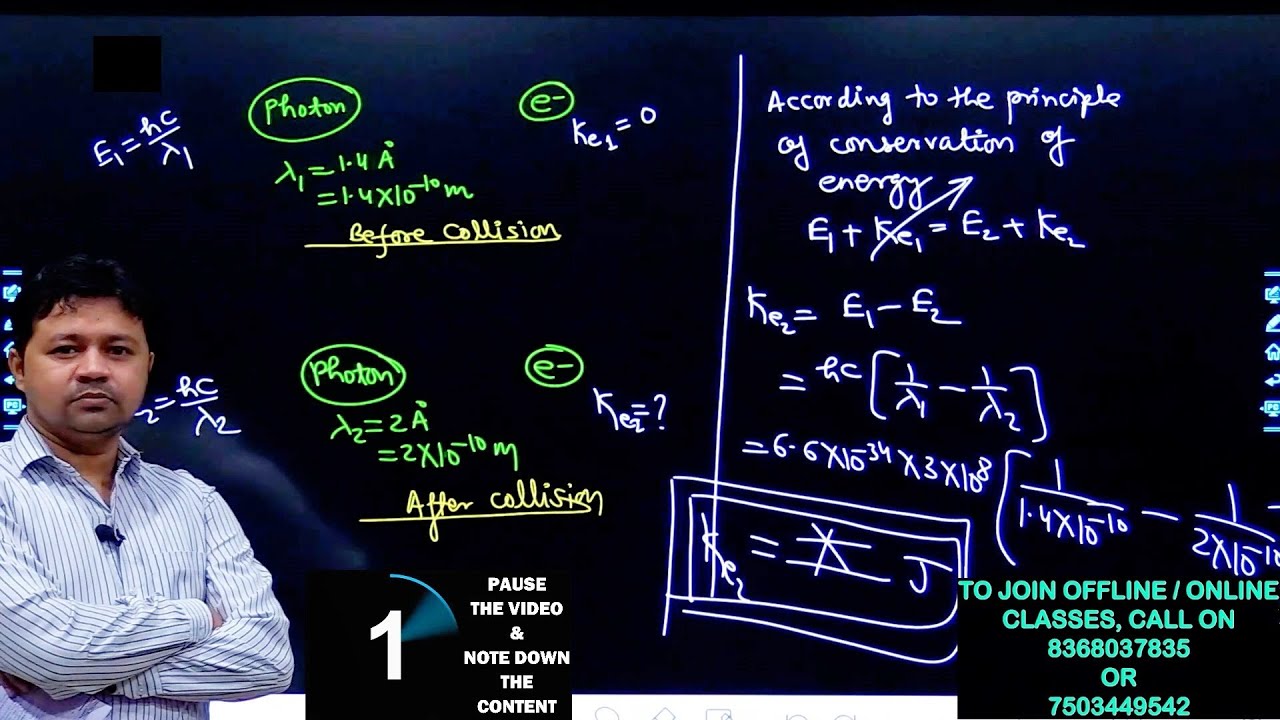 Photon
e-
E₁ = hc/λ₁
Ke₁ = 0
λ₁ = 1.4 Å
= 1.4×10⁻¹⁰ m
Before Collision
Photon
e-
₂ = hc/λ₂
Ke₂ = ?
λ₂ = 2 Å
= 2×10⁻¹⁰ m
After collision
According to the principle
of conservation of
energy
E₁ + Ke₁ = E₂ + Ke₂
Ke₂ = E₁ − E₂
= hc [1/λ₁ − 1/λ₂]
= 6.6×10⁻³⁴ × 3×10⁸ [1/1.4×10⁻¹⁰ − 1/2×10⁻¹⁰
Ke₂ = X J
1
PAUSE
THE VIDEO
&
NOTE DOWN
THE
CONTENT
TO JOIN OFFLINE / ONLINE
CLASSES, CALL ON
8368037835
OR
7503449542